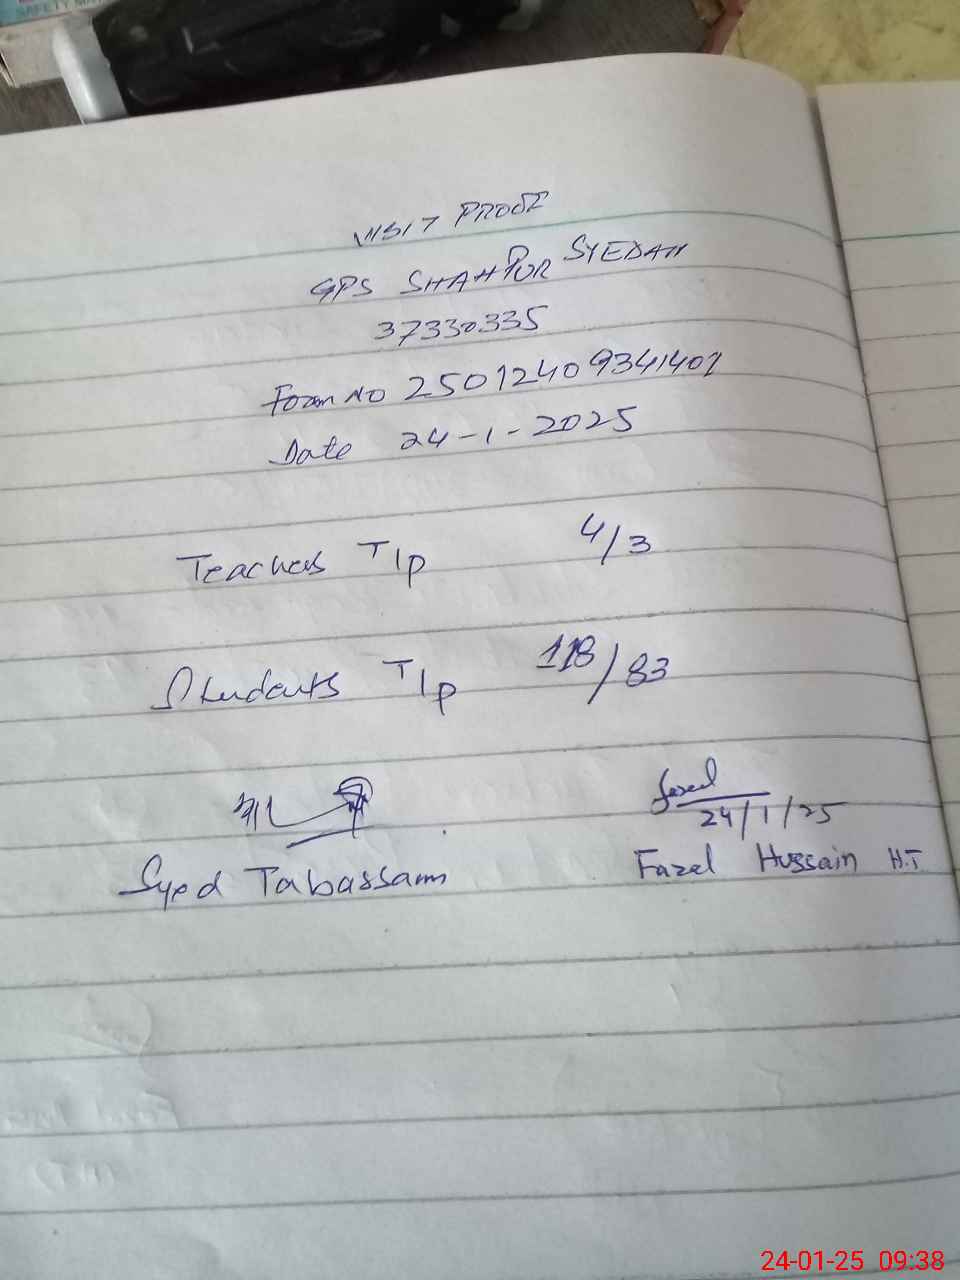 SAFETY MA
VISIT PROOF
GPS SHAHPUR SYEDAH
37330335
Form NO 25012409341401
Date 24-1-2025
Teachers T/p 4/3
Students T/p 118/83
24/1/25
Syed Tabassam
Fazal Hussain H.T
24-01-25 09:38